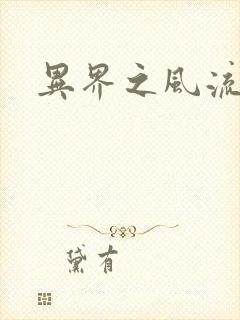 異界之風流
黛有